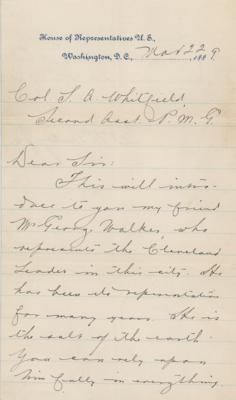 House of Representatives U.S.,
Washington, D.C., Nov 22 1889
Col. S. A. Whitfield,
Second Asst. P. M. G.
Dear Sir:
This will intro-
duce to you my friend
Mr Georg. Walker, who
represents the Cleveland
Leader in this city. He
has been its representative
for many years. He is
the salt of the earth.
You can rely upon
him fully in everything.